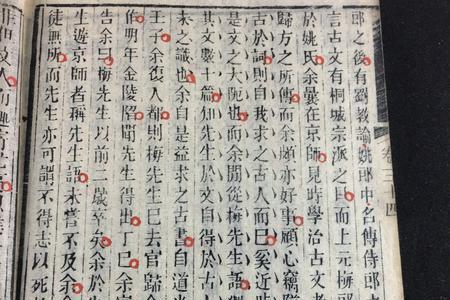 卷三 四
郎之後有劉教諭姚郎中名傳侍郎
言古文有桐城宗派之目而上元梅郎
於姚氏余曩在京師見時學治古文者
歸方之所傳而余頗亦好事顧心竊隘
古於詞則自我求之古人而已奚近時
是文之大戹也而余間從梅先生語
其文數十篇知先生於文自得於古人
未之識也余自是益求之古書自道
壬子余復入都則梅先生已去官歸
作明年金陵陷聞先生得出丁巳余
告余曰梅先生以前二歲卒矣余於
生遊京師者稱先生語未嘗不及余
徒無所而先生亦可謂不得志以死